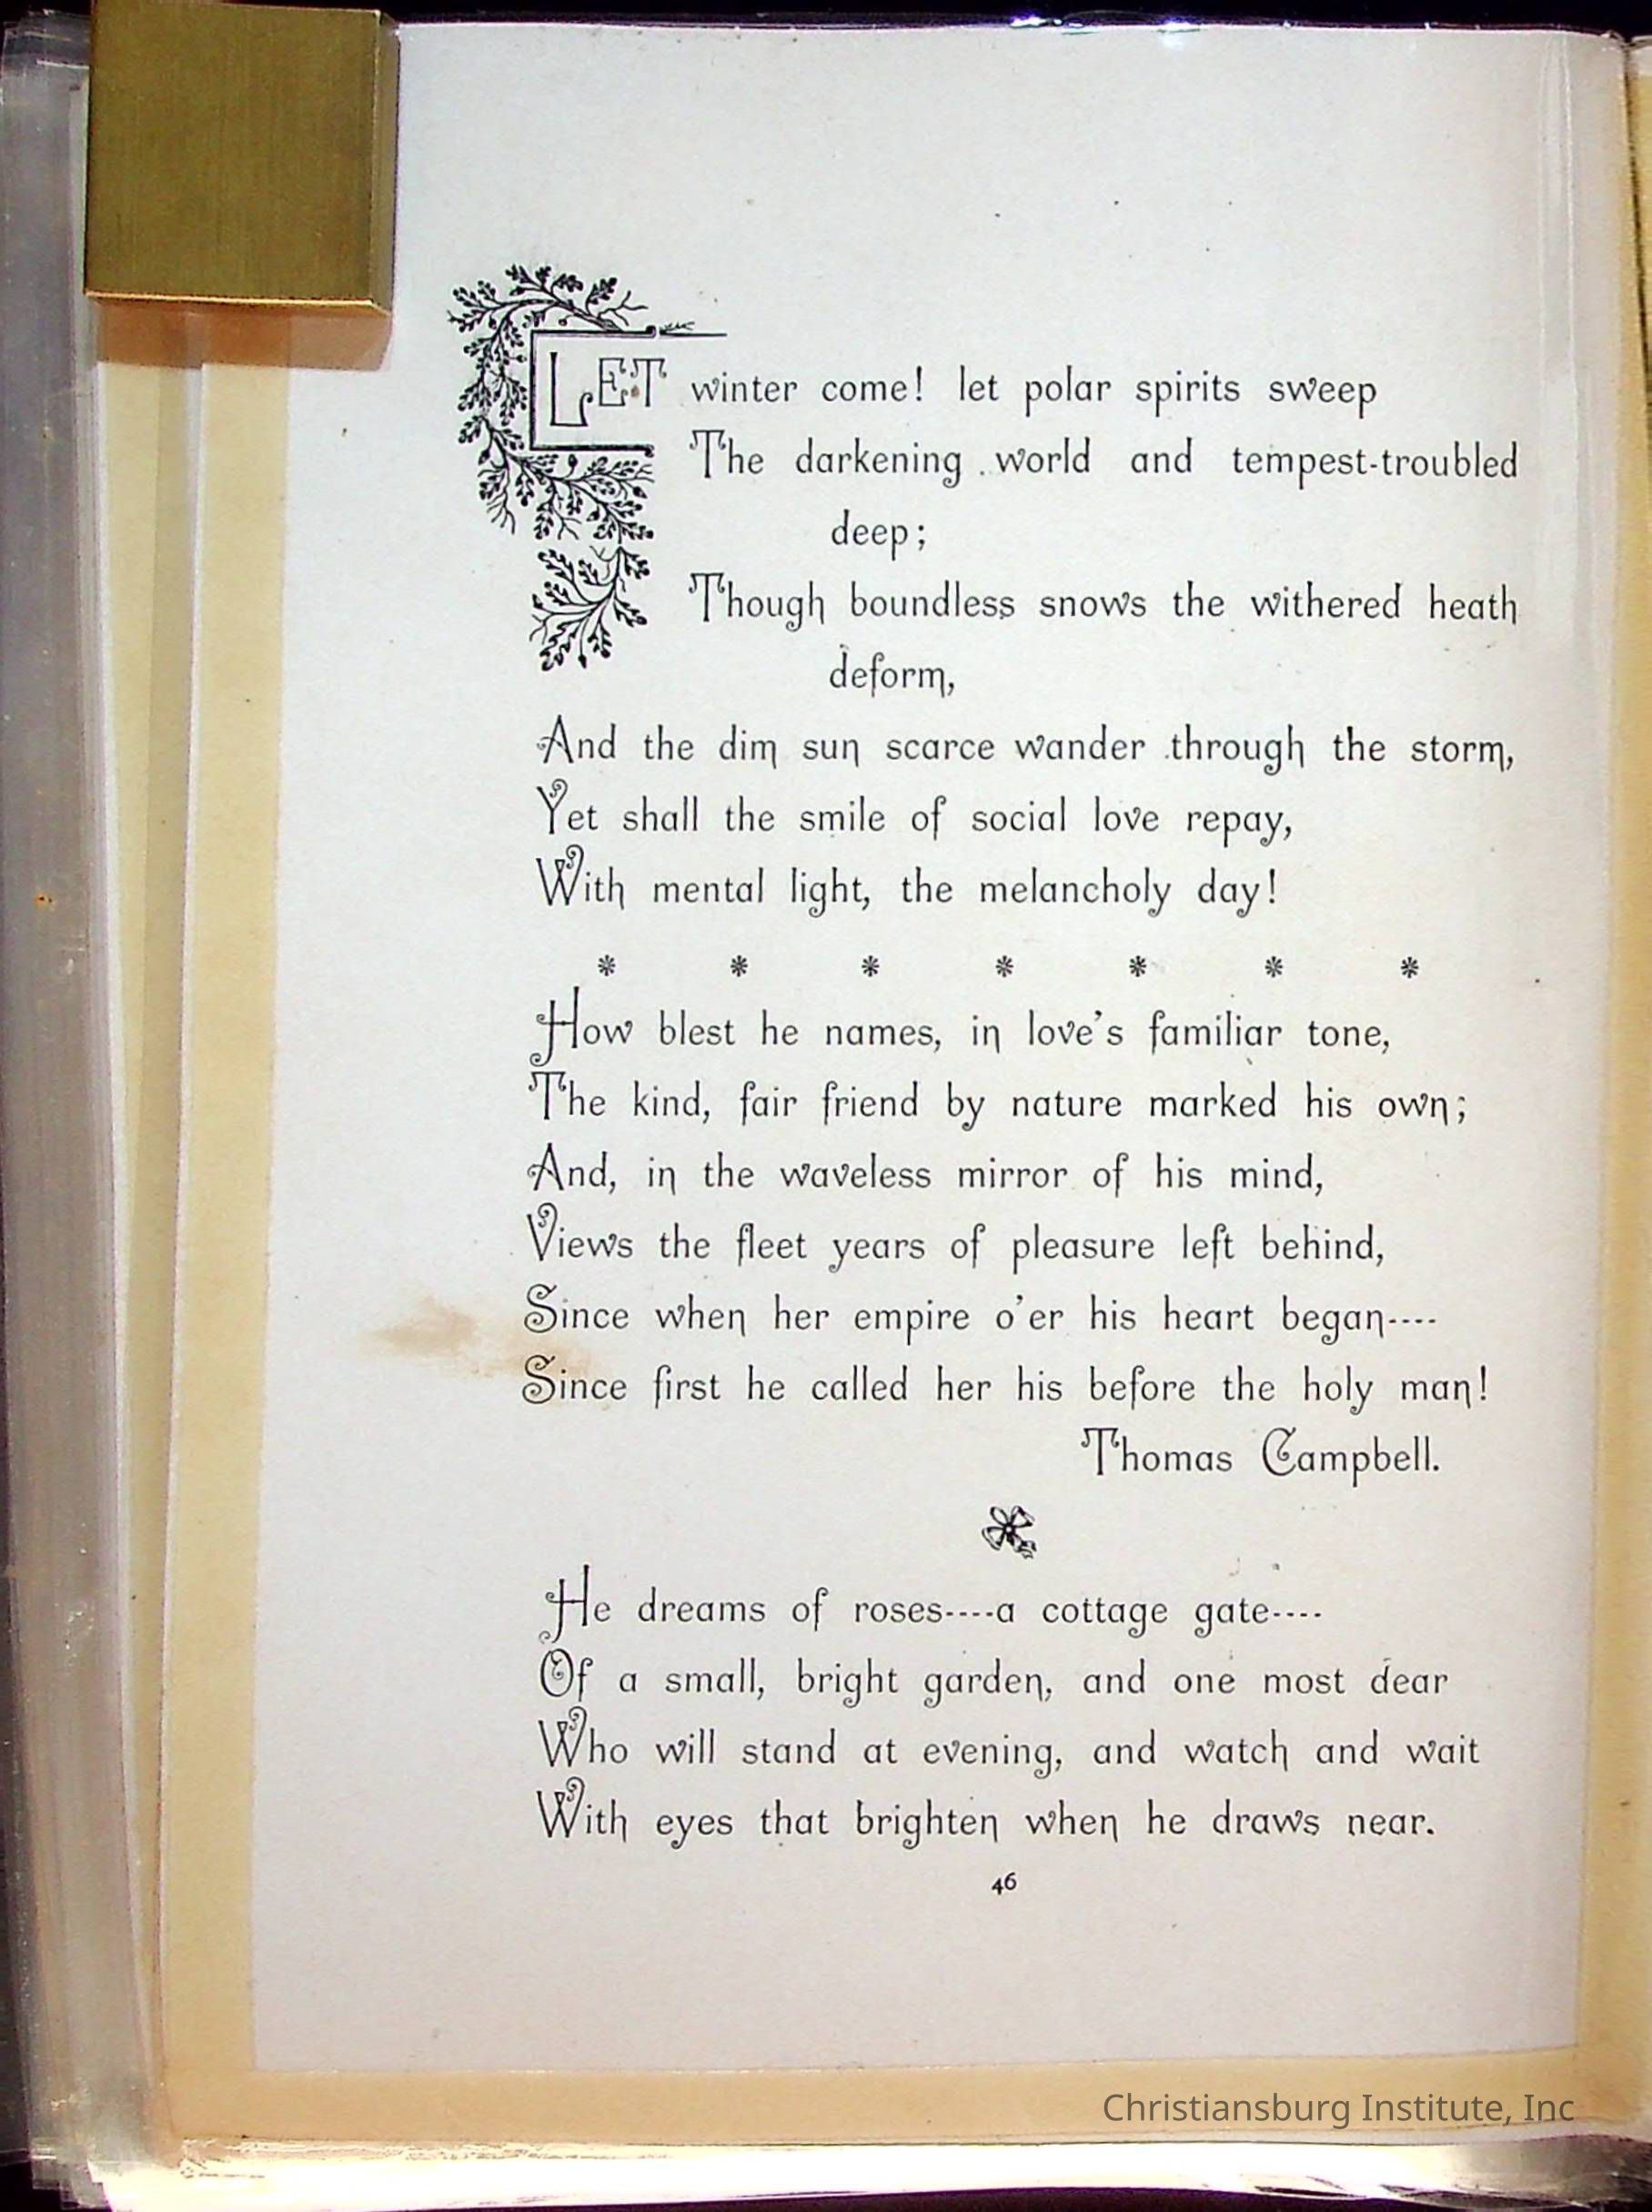 LET winter come! let polar spirits sweep
The darkening world and tempest-troubled
deep;
Though boundless snows the withered heath
deform,
And the dim sun scarce wander through the storm,
Yet shall the smile of social love repay,
With mental light, the melancholy day!
* * * * * * *
How blest he names, in love's familiar tone,
The kind, fair friend by nature marked his own;
And, in the waveless mirror of his mind,
Views the fleet years of pleasure left behind,
Since when her empire o'er his heart began----
Since first he called her his before the holy man!
Thomas Campbell.
He dreams of roses----a cottage gate----
Of a small, bright garden, and one most dear
Who will stand at evening, and watch and wait
With eyes that brighten when he draws near.
46
Christiansburg Institute, Inc